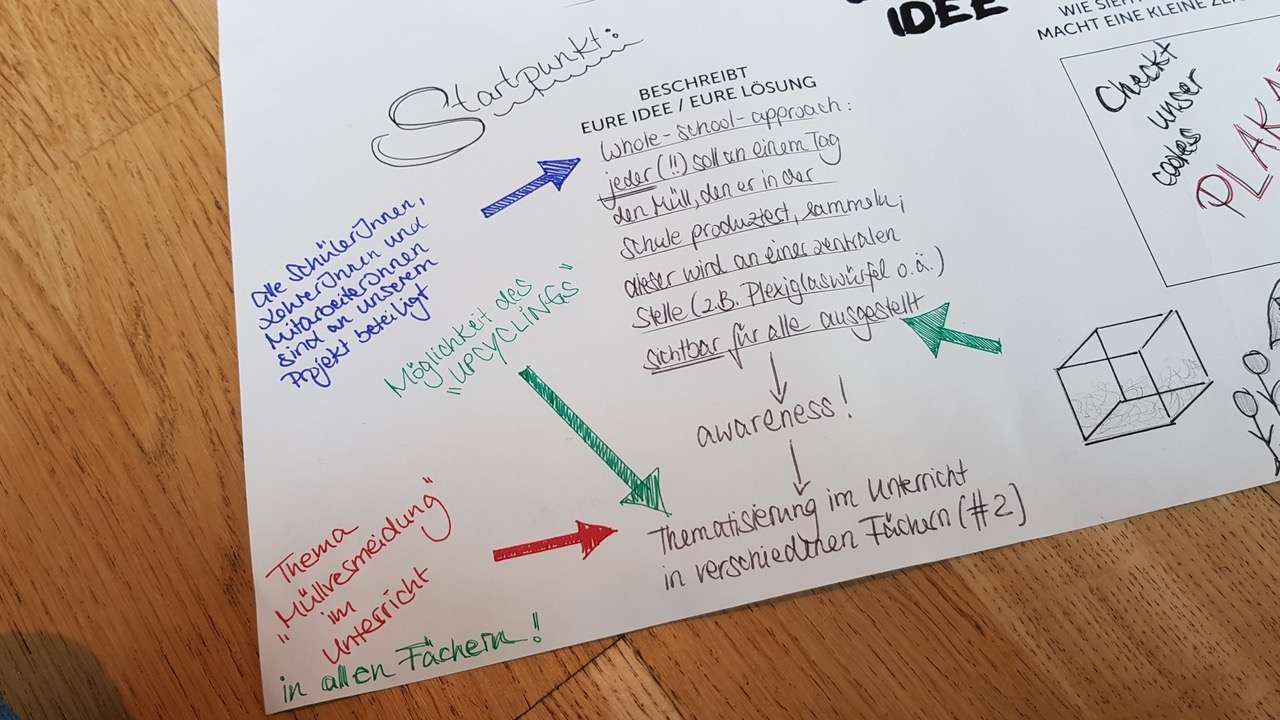 IDEE
WIE SIEHT
MACHT EINE KLEINE
Startpunkt:
BESCHREIBT
EURE IDEE / EURE LÖSUNG
whole-school-approach:
jeder (!!) soll an einem Tag
den Müll, den er in der
Schule produziert, sammeln;
dieser wird an einer zentralen
Stelle (z.B. Plexiglaswürfel o.ä.)
sichtbar für alle ausgestellt
awareness!
Thematisierung im Unterricht
in verschiedenen Fächern (#2)
Alle SchülerInnen,
LehrerInnen und
MitarbeiterInnen
sind an unserem
Projekt beteiligt
Möglichkeit des
"UPCYCLINGS"
Thema
"Müllvermeidung"
im
Unterricht
in allen Fächern!
Checkt
unser
cooles
PLAKA